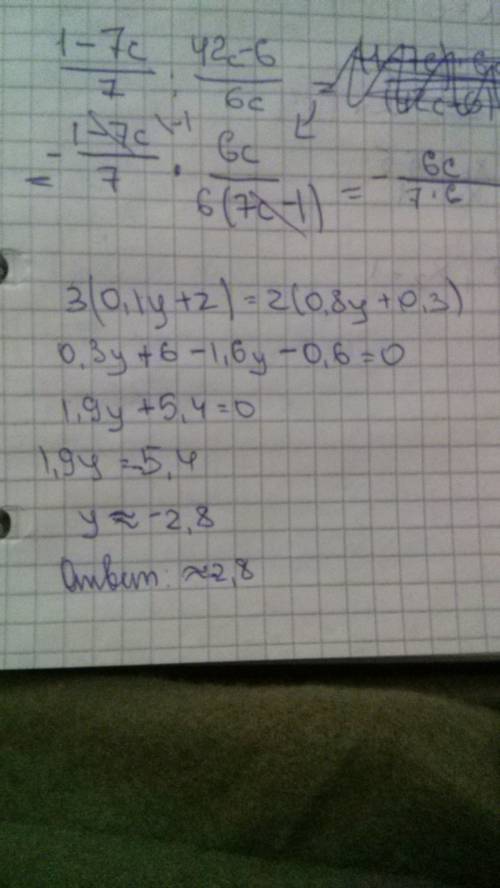 (1-7c)/7 : (42c-6)/6c =
= - (1-7c)/7 \-1 · 6c/(6(7c-1)) = - 6c/(7·6)
3(0,1y+2)=2(0,8y+0,3)
0,3y+6-1,6y-0,6=0
1,9y+5,4=0
1,9y=-5,4
y≈-2,8
Ответ: ≈2,8